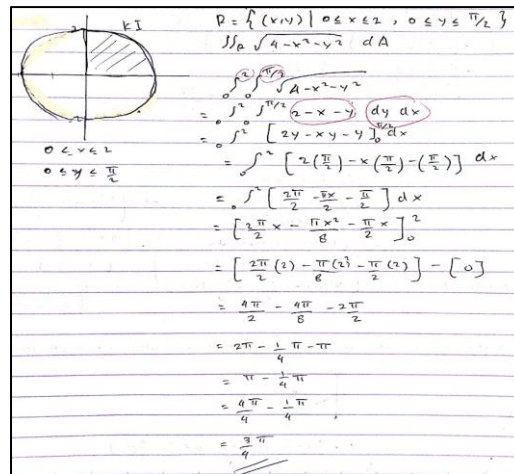 K I
2
-2
0 ≤ x ≤ 2
0 ≤ y ≤ π/2
R = { (x,y) | 0 ≤ x ≤ 2 , 0 ≤ y ≤ π/2 }
∬_R √4-x²-y² dA
₀∫² ₀∫^π/2 √4-x²-y²
= ₀∫² ₀∫^π/2 2-x-y dy dx
= ₀∫² [ 2y - xy - y ]₀^π/2 dx
= ₀∫² [ 2(π/2) - x(π/2) - (π/2) ] dx
= ₀∫² [ 2π/2 - πx/2 - π/2 ] dx
= [ 2π/2 x - πx²/8 - π/2 x ]₀²
= [ 2π/2 (2) - π(2)²/8 - π/2 (2) ] - [0]
= 4π/2 - 4π/8 - 2π/2
= 2π - 1/4 π - π
= π - 1/4 π
= 4π/4 - 1/4 π
= 3/4 π